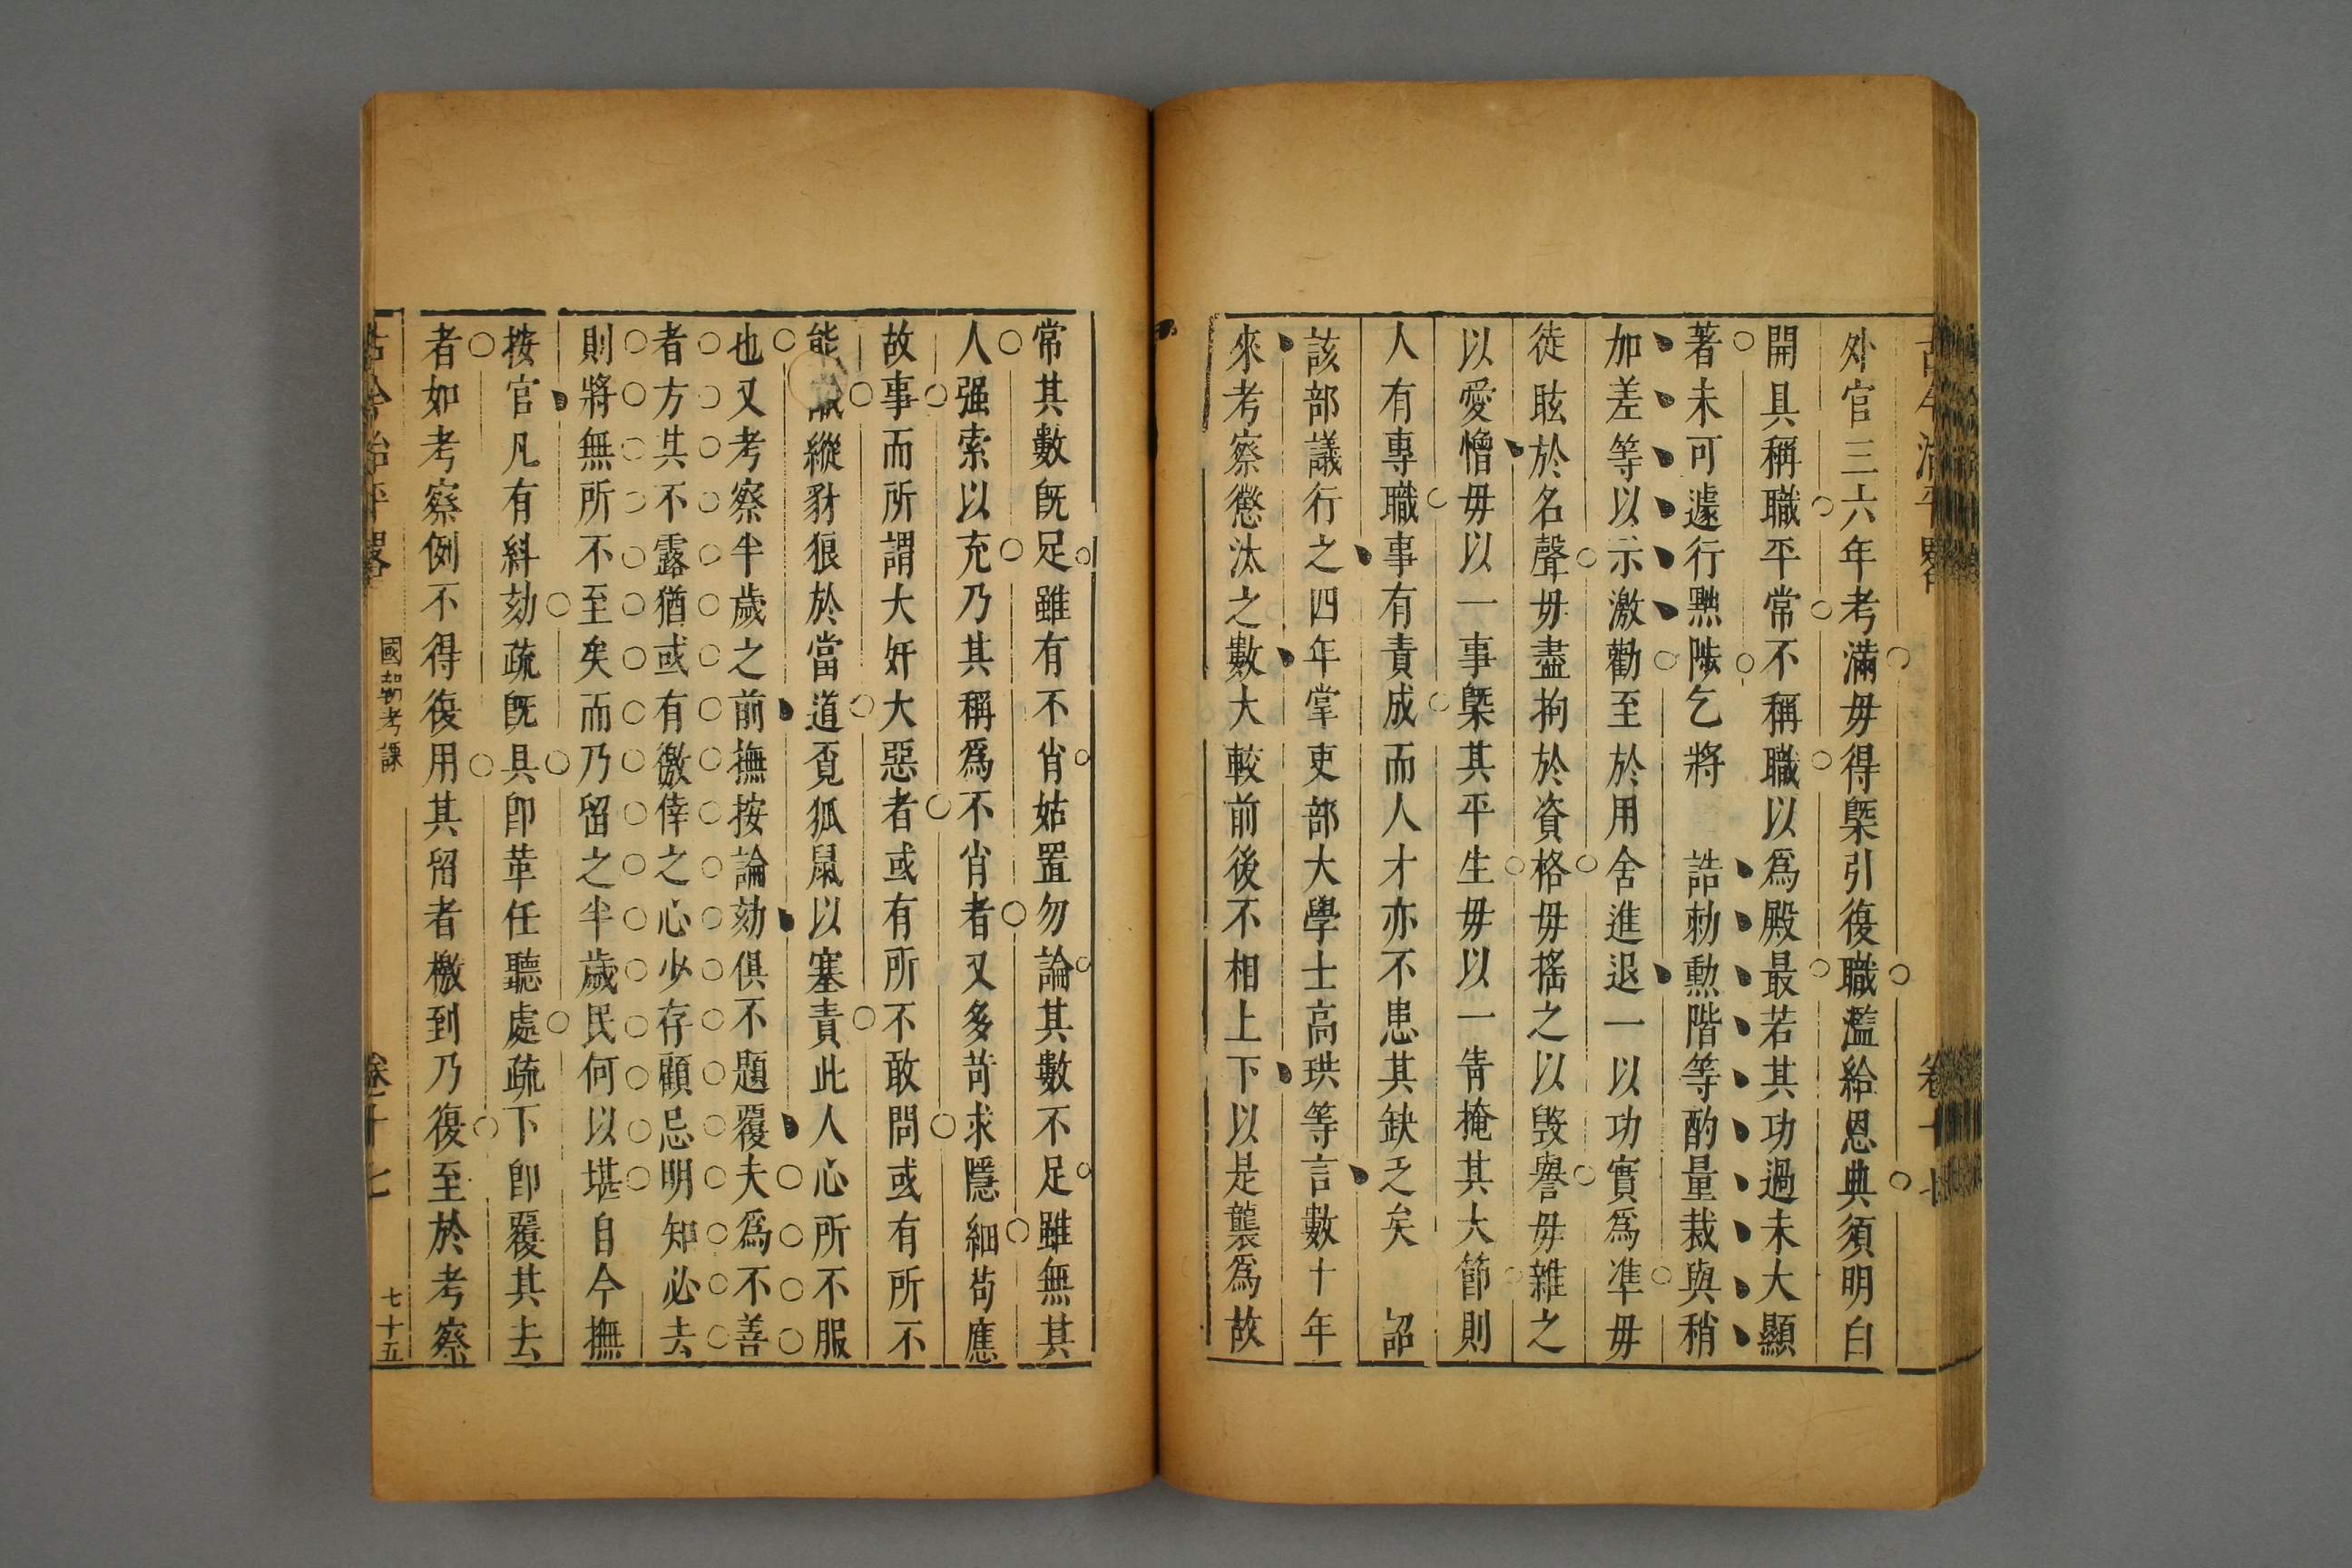 外官三六年考滿毋得槩引復職濫給恩典須明白
開具稱職平常不稱職以爲殿最若其功過未大顯
著未可遽行黜陟乞將　誥勑勲階等酌量裁與稍
加差等以示激勸至於用舍進退一以功實爲凖毋
徒眩於名聲毋盡拘於資格毋搖之以毀譽毋雜之
以愛憎毋以一事槩其平生毋以一眚掩其大節則
人有專職事有責成而人才亦不患其缺乏矣　詔
該部議行之四年掌吏部大學士高珙等言數十年
來考察懲汰之數大較前後不相上下以是襲爲故
常其數旣足雖有不肖姑置勿論其數不足雖無其
人强索以充乃其稱爲不肖者又多苛求隱細苟應
故事而所謂大奸大惡者或有所不敢問或有所不
能識縱豺狼於當道覔狐鼠以塞責此人心所不服
也又考察半歲之前撫按論劾俱不題覆夫爲不善
者方其不露猶或有徼倖之心少存顧忌明知必去
則將無所不至矣而乃留之半歲民何以堪自今撫
按官凡有糾劾疏旣具卽革任聽處疏下卽覆其去
者如考察例不得復用其留者檄到乃復至於考察
古今治平畧
國朝考課
卷十七
七十五